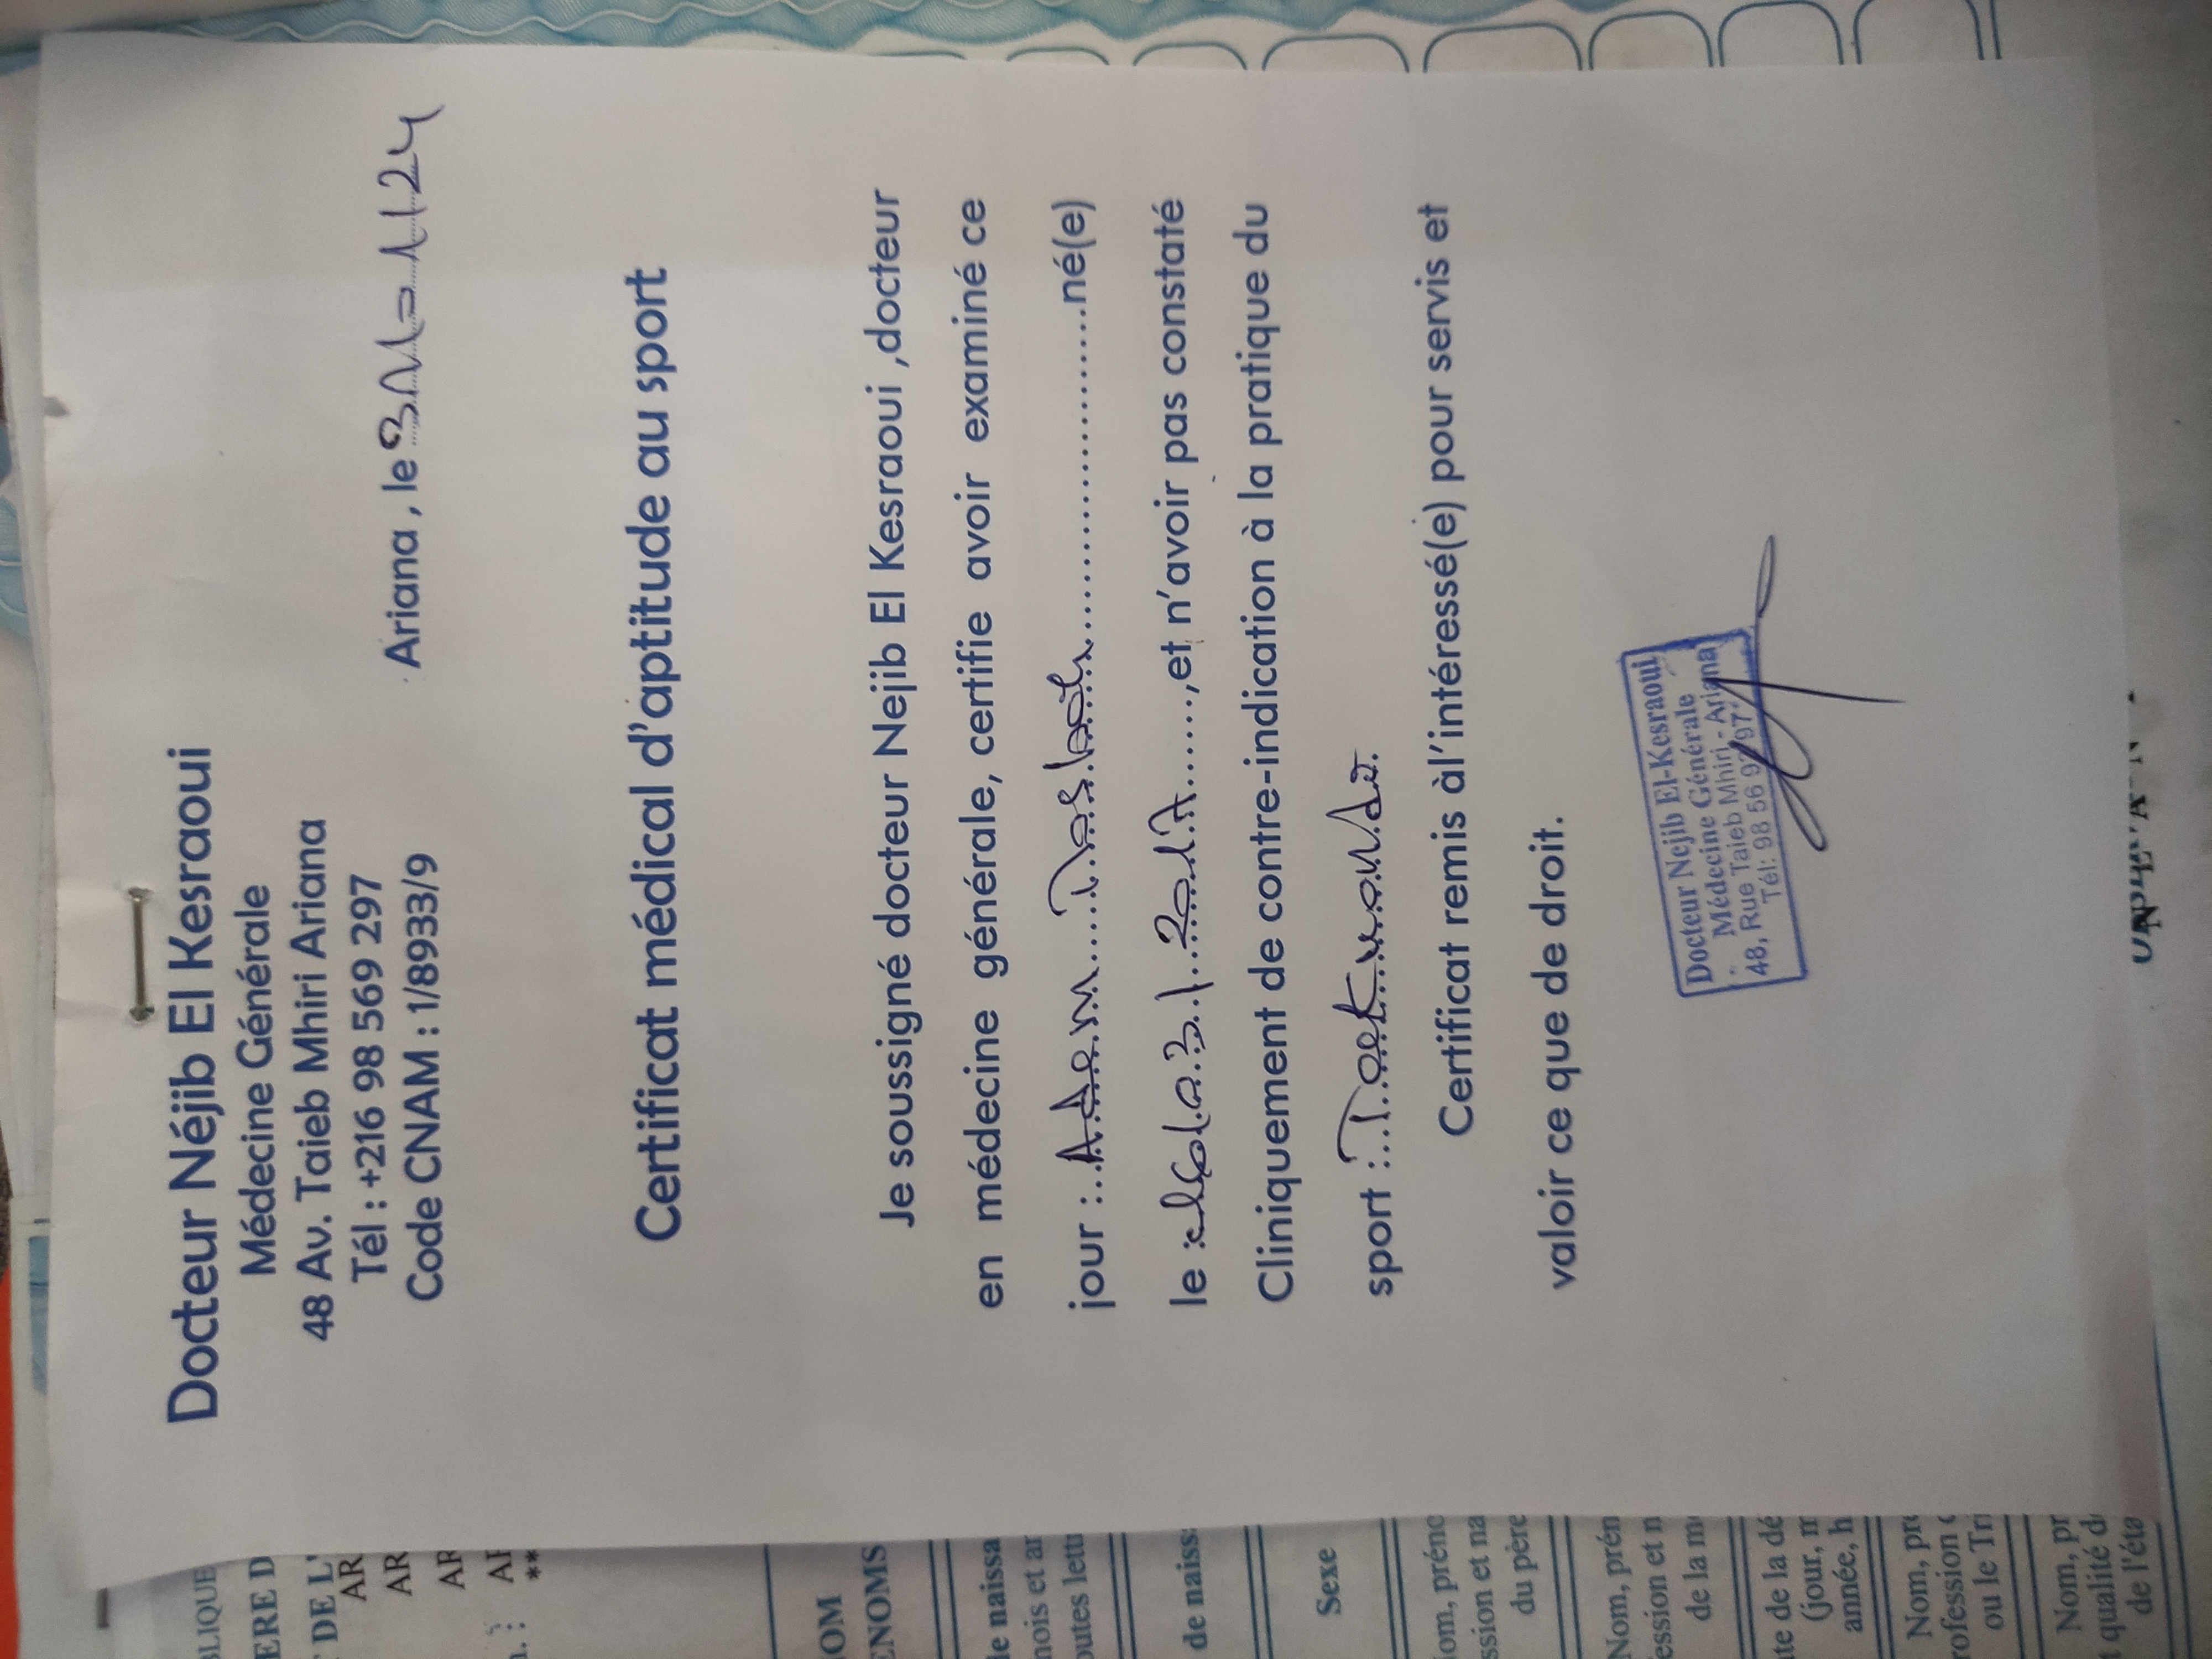 Docteur Néjib El Kesraoui
Médecine Générale
48 Av. Taieb Mhiri Ariana
Tél : +216 98 569 297
Code CNAM : 1/8933/9
Ariana , le
Certificat médical d'aptitude au sport
Je soussigné docteur Nejib El Kesraoui ,docteur
en médecine générale, certifie avoir examiné ce
jour : Adam né(e)
le : 2017 ,et n'avoir pas constaté
Cliniquement de contre-indication à la pratique du
sport : Taekwondo.
Certificat remis àl'intéressé(e) pour servis et
valoir ce que de droit.
Docteur Nejib El-Kesraoui
Médecine Générale
48, Rue Taieb Mhiri - Ariana
Tél: 98 56
BLIQUE
ERE D
DE L'
AR
AR
AR
AR
**
OM
ENOMS
le naissa
nois et an
outes lettu
de naiss
Sexe
om, préno
ssion et na
du père
Nom, prén
fession et n
de la m
te de la dé
(jour, m
année, h
Nom, pré
rofession
ou le Tri
Nom, pr
qualité d
de l'éta